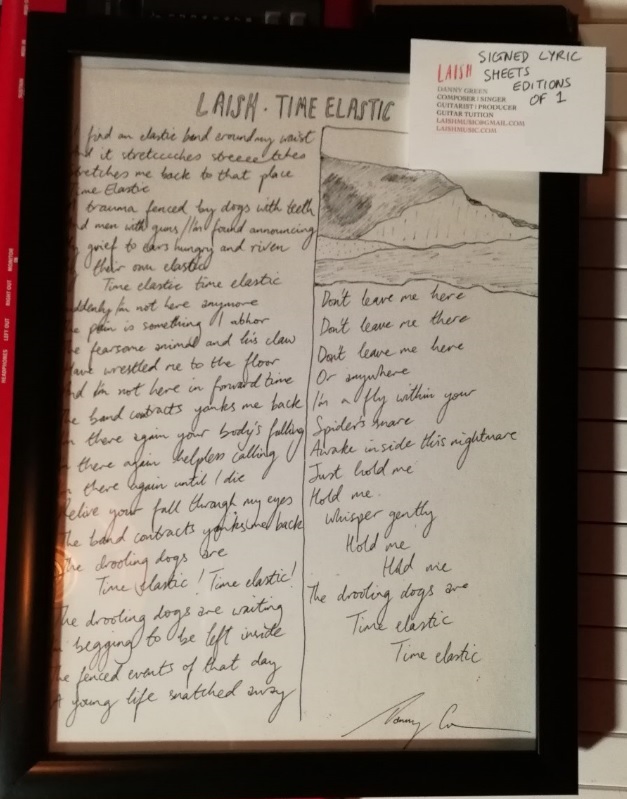 LAISH · TIME ELASTIC
find an elastic band around my waist
it stretcuuches streeee tches
me back to that place
Elastic
trauma fenced by dogs with teeth
men with guns // I'm found announcing
grief to ears hungry and riven
their own elastic
Time elastic time elastic
I'm not here anymore
pain is something I abhor
fearsome animal and his claw
Have wrestled me to the floor
And I'm not here in forward time
The band contracts yanks me back
there again your body's falling
there again helpless calling
there again until I die
Relive your fall through my eyes
The band contracts yanks me back
The drooling dogs are
Time elastic! Time elastic!
The drooling dogs are waiting
begging to be left inside
The fenced events of that day
A young life snatched away
Don't leave me here
Don't leave me there
Don't leave me here
Or anywhere
I'm a fly within your
Spider's snare
Awake inside this nightmare
Just hold me
Hold me.
Whisper gently
Hold me
Hold me
The drooling dogs are
Time elastic
Time elastic
LAISH
SIGNED LYRIC
SHEETS
EDITIONS
OF 1
DANNY GREEN
COMPOSER | SINGER
GUITARIST | PRODUCER
GUITAR TUITION
LAISHMUSIC@GMAIL.COM
LAISHMUSIC.COM
MONITOR
RIGHT OUT
LEFT OUT
HEADPHONES